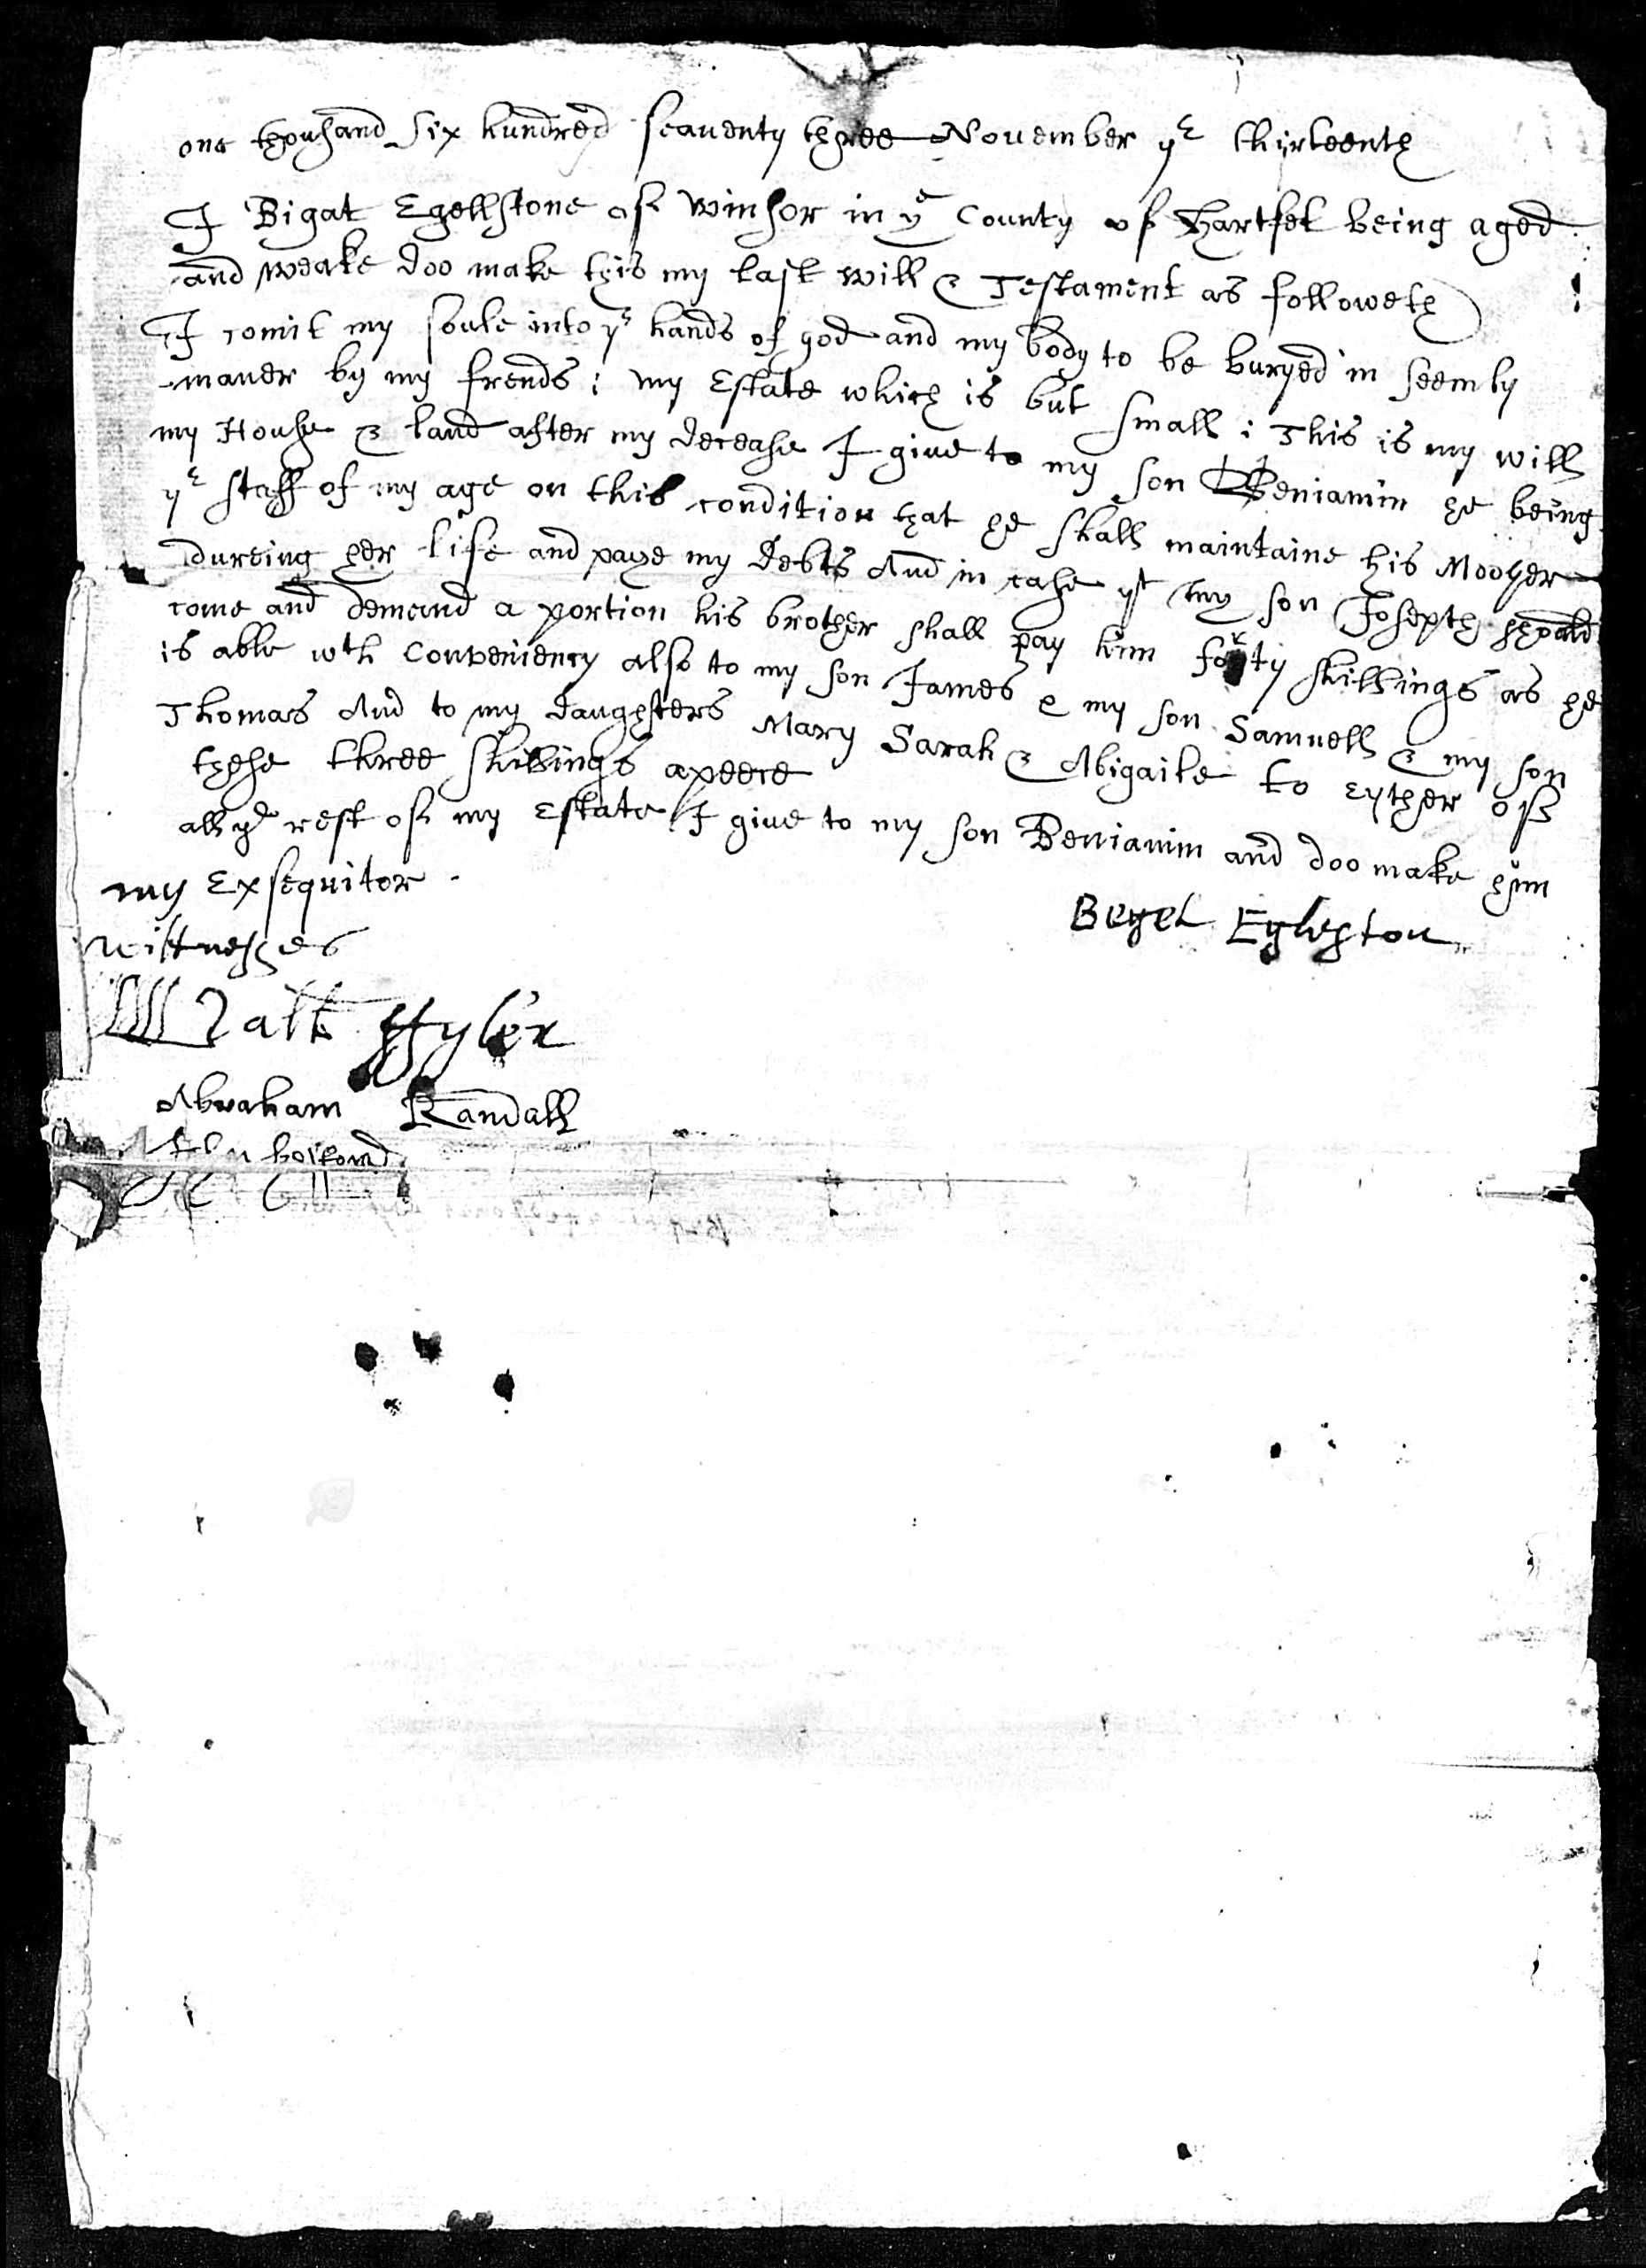 one thousand six hundred seaventy three November yᵉ thirteenth
I Bigat Egellstone of winsor in yᵉ County of Hartfet being aged
and weake doo make this my last will & Testament as followeth
I comit my soule into yᵉ hands of god and my body to be buryed in seemly
maner by my frends : my Estate which is but small : This is my will
my House & land after my decease I give to my son Beniamin he being
yᵉ staff of my age on this condition that he shall maintaine his Mooher
dureing her life and paye my debts And in case yᵗ my son Joseph should
come and demand a portion his brother shall pay him forty shillings as he
is able wth Conveniency also to my son James & my son Samuell & my son
Thomas And to my daughters Mary Sarah & Abigaile to eyther off
these three shillings apeece
all yᵉ rest of my Estate I give to my son Beniamin and doo make him
my Exsequitor
Begel Egleston
wittnesses
Matt
Abraham Randall